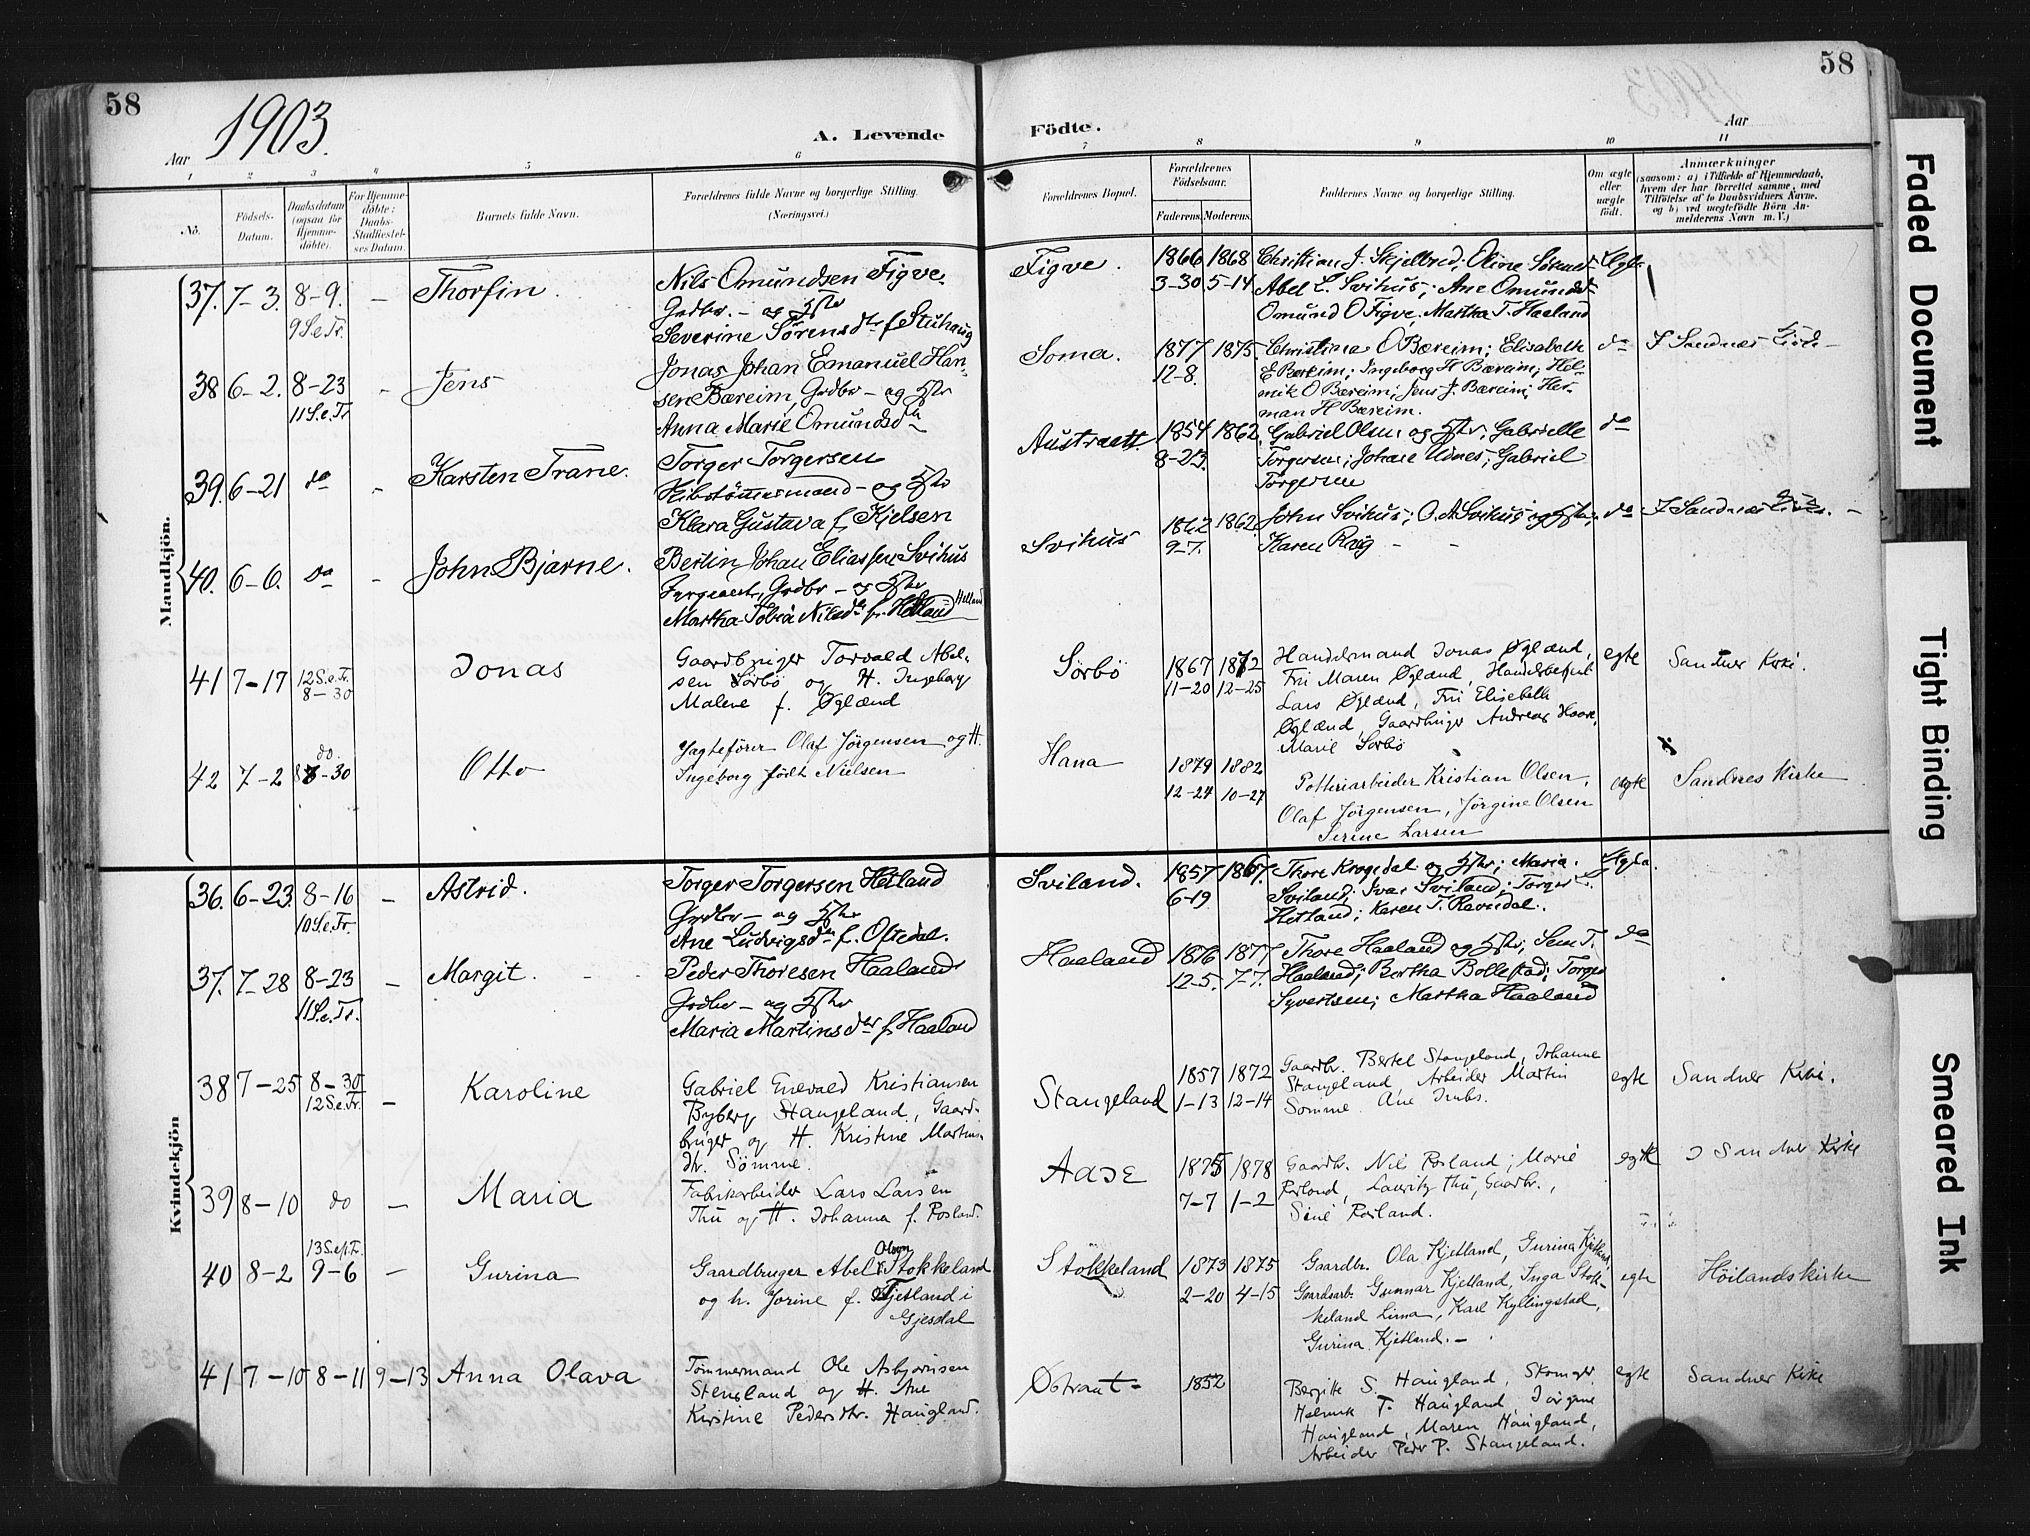 58
1903.
Aar
A. Levende
Födte.
Aar
58
1 2 3 4 5 6 7 8 9 10 11
No.
Födsels-Datum.
Daabsdatum (ogsaa for Hjemmedöbte).
For Hjemmedöbte: Daabs-Stadfæstelses Datum.
Barnets fulde Navn.
Forældrenes fulde Navne og borgerlige Stilling. (Næringsvei.)
Forældrenes Bopæl.
Forældrenes Födselsaar.
Faderens. Moderens.
Faddernes Navne og borgerlige Stilling.
Om ægte eller uægte födt.
Anmærkninger
(saasom: a) i Tilfælde af Hjemmedaab, hvem der har forrettet samme, med Tilföielse af to Daabsvidners Navne, og b) ved uægtefödte Börn Anmelderens Navn m. V.)
Mandkjön.
37. 7-3. 8-9. - Thorfin.
9 S.e.Tr.
Nils Omundsen Figve.
Grdbr. - og Hstr
Severine Sørensdtr f. Stuhaug
Figve.
1866 1868
3-30 5-14
Christian J. Skjelbred; Oline
Abel L. Svihus; Ane Omunds
Omund O Figve, Martha T. Haaland
38 6-2. 8-23 - Jens
11 S.e.Tr
Jonas Johan Emanuel Han-
sen Bæreim, Grdbr - og Hstr
Anna Marie Omundsd
Soma.
1877 1875.
12-8.
Christina O Bæreim; Elisabeth
E Bæreim; Ingeborg H Bæreim; Hel-
mik O Bæreim; Jens J. Bæreim; Her-
man H Bæreim.
do
I Sandnes
39. 6-21 do - Karsten Trane.
Torger Torgersen
Skibstømmermand - og Hstr
Klara Gustava f. Kjelsen
Austraatt.
1854 1862.
8-23.
Gabriel Olsen og Hstr; Gabrielle
Torgersen; Johan Udnes; Gabriel
Torgersen
do
40. 6-6. do - John Bjarne.
Bertin Johan Eliassen Svihus
Sergeant, Grdbr - og Hstr
Martha Tobia Nilsdtr f. Helland
Svihus
1862 1862.
9-7.
John Svihus; O. A Svihus og Hstr;
Karen Røig - -
do
I Sandnes
41 7-17 12 S.e.Tr. Jonas
8-30
Gaardbruger Torvald Abel-
sen Sørbö og H. Ingeborg
Malene f. Øglænd
Sörbö
1867 1872
11-20 12-25
Handelsmand Jonas Øglænd,
Frk Maren Øglænd, Handelsbetjent
Lars Øglænd, Frk Elisabeth
Øglænd, Gaardbruger Andreas
Marie Sørbö
egte
Sandnes Kirke.
42 7-2 do. Otto
8-30
Jagtefører Olaf Jørgensen og H.
Ingeborg født Nielsen
Hana
1879 1882
12-24 10-27
Potteriarbeider Kristian Olsen,
Olaf Jørgensen, Jørgine Olsen
Serine Larsen
egte
Sandnes Kirke
Kvindekjön
36. 6-23. 8-16 - Astrid.
10 S.e.Tr.
Torger Torgersen Hetland
Grdbr - og Hstr
Ane Ludvigsd f. Oftedal.
Sviland.
1857 1867.
6-19
Thore Krogedal og Hstr; Maria
Sviland; Ivar Sviland; Torger
Hetland; Karen T. Ravndal.
Ægte.
37. 7-28 8-23 - Margit.
11 S.e.Tr.
Peder Thoresen Haaland
Grdbr - og Hstr
Maria Martinsdtr f. Haaland
Haaland
1876 1877
12-5. 7-7.
Thore Haaland og Hstr; Sem T.
Haaland; Bertha Bollestad; Torger
Syvertsen; Martha Haaland
do
38 7-25 8-30 - Karoline
12 S.e.Tr.
Gabriel Enevald Kristiansen
Byberg Stangeland, Gaard-
bruger og H. Kristine Martins-
dtr. Sømme.
Stangeland
1857 1872
1-13 12-14
Gaardbr. Bertel Stangeland, Johanne
Stangeland, Arbeider Martin
Somme. Ane
egte
Sandnes Kirke.
39 8-10 do - Maria
Fabrikarbeider Lars Larsen
Thu og H. Johanna f. Rosland.
Aase
1875 1878
7-7 1-2
Gaardbr. Nils Rosland, Marie
Rosland, Lauritz Thu, Gaardbr.,
Sine Rosland.
egte
I Sandnes Kirke
40 8-2 13 S.e.p.Tr. - Gurina
9-6
Gaardbruger Abel Olsen Stokkeland
og h. Jorine f. Kjetland i
Gjesdal
Stokkeland
1873 1875
2-20 4-15
Gaardbr. Ola Kjetland, Gurina Kjetland,
Gaardarb. Gunnar Kjetland, Inga Stok-
keland Lima, Karl Kyllingstad,
Gurina Kjetland. -
egte
Höilandskirke
41 7-10 8-11 9-13 Anna Olava
Tømmermand Ole Asbjørnsen
Stensland og H. Ane
Kirstine Pedersdtr. Haugland.
Østraat-
1852
Bergitte S. Haugland, Skomager
Helmik T. Haugland, Jörgine
Haugland, Maren Haugland,
Arbeider Peder P. Stangeland.
egte
Sandnes Kirke
Faded Document
Tight Binding
Smeared Ink